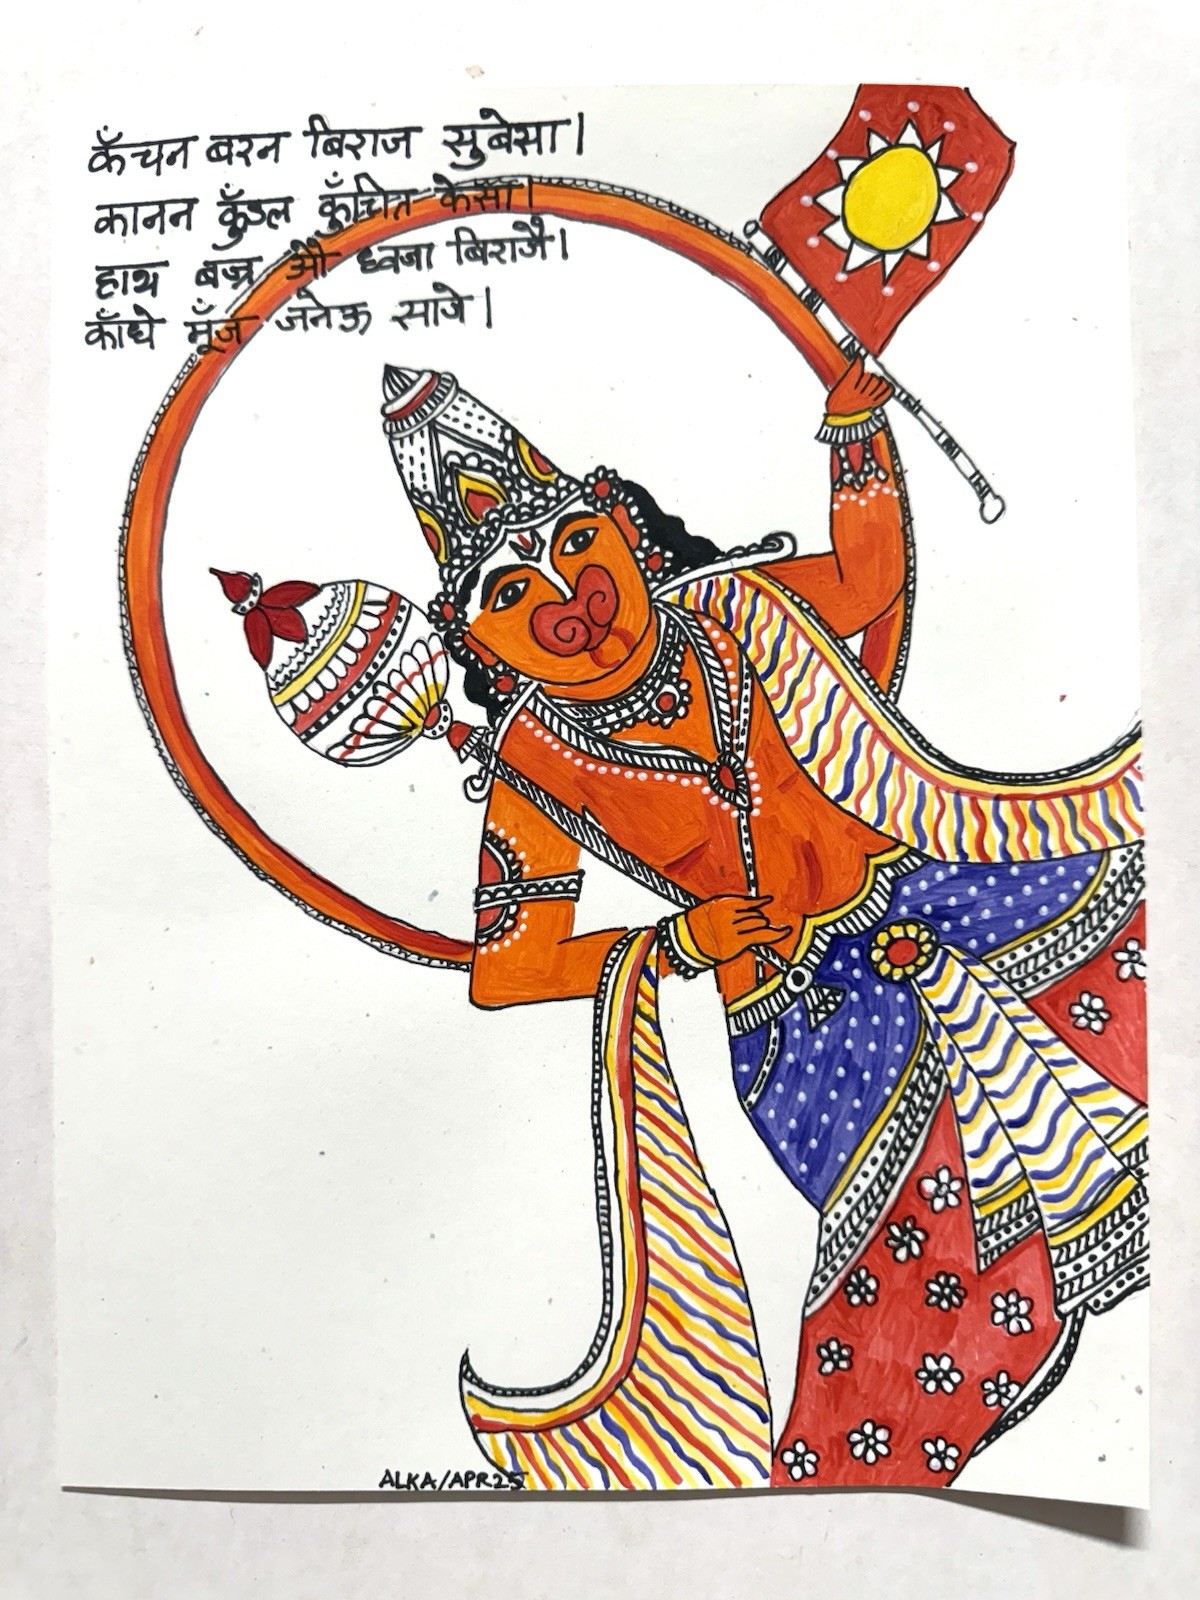 कँचन बरन बिराज सुबेसा।
कानन कुँडल कुँचित केसा।
हाथ बज्र औ ध्वजा बिराजै।
काँधे मूँज जनेऊ साजे।
ALKA/APR25